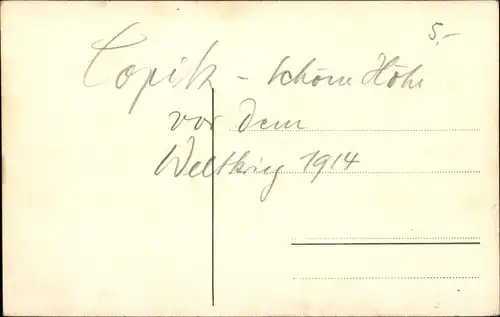 5.-
Copitz - schöne Höhe
vor dem
Weltkrieg 1914